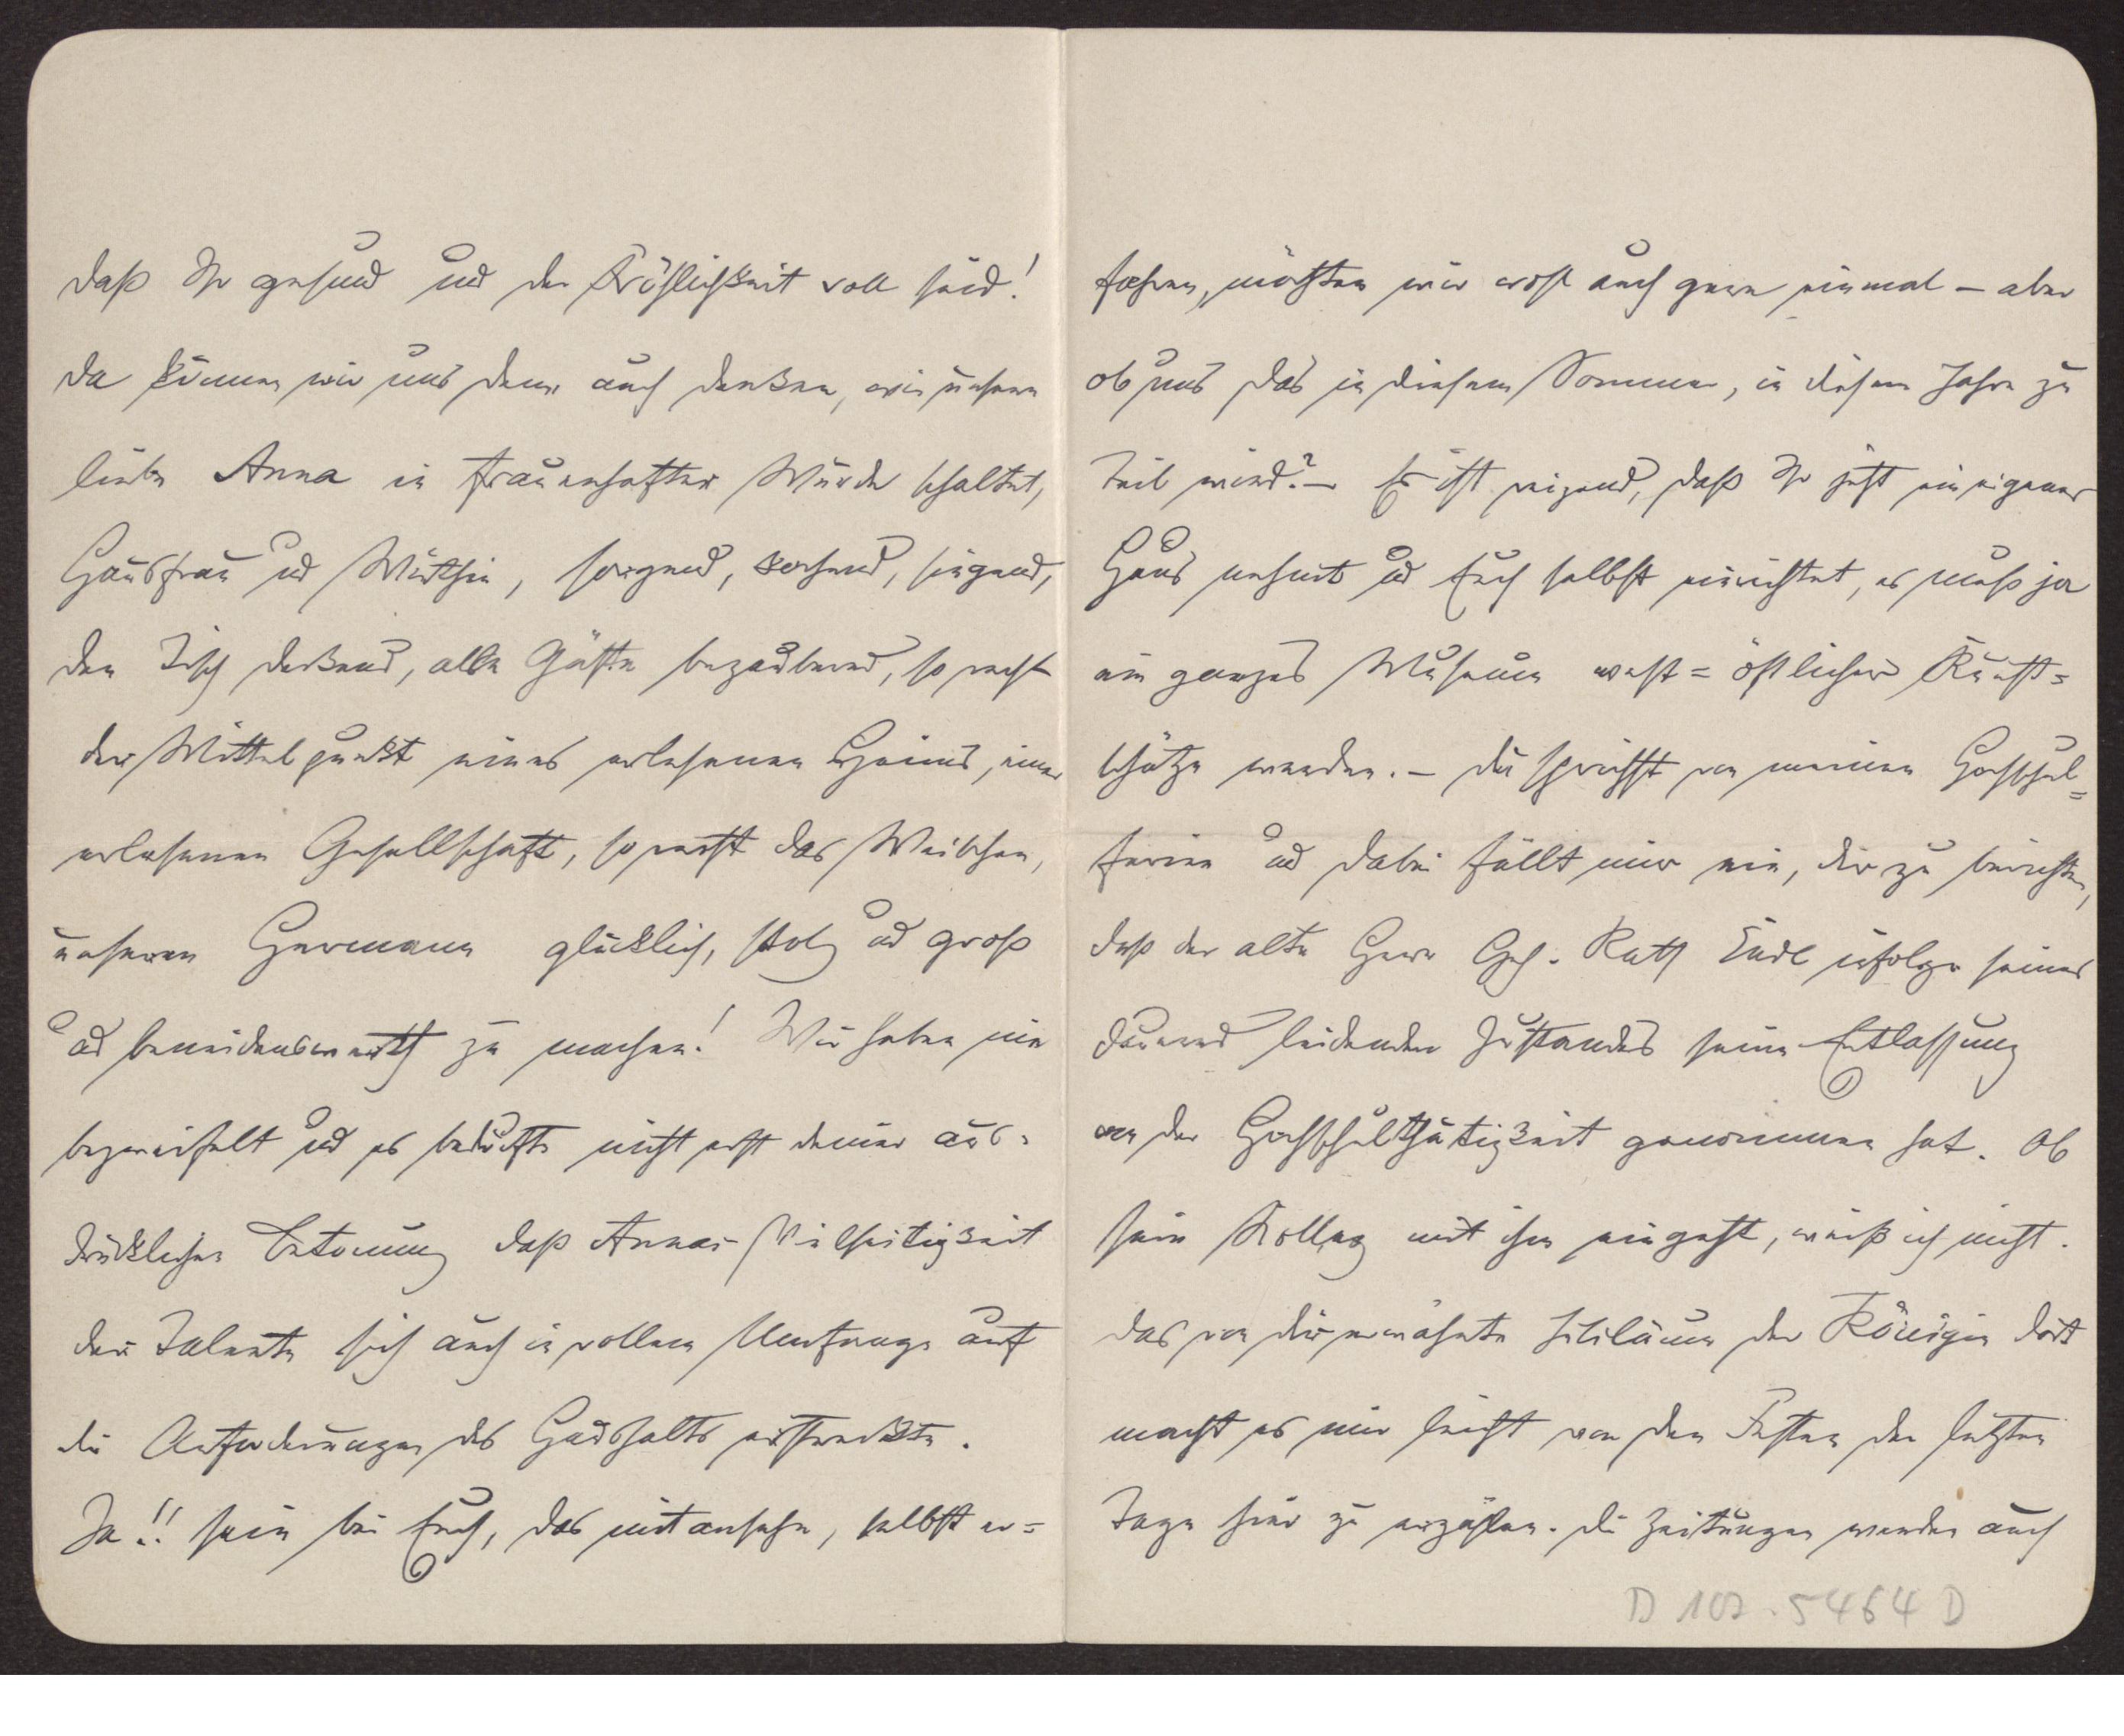 daß Ihr gesund und der Fröhlichkeit voll seid!
da können wir uns denn auch denken, wie unsere
liebe Anna in frauenhafter Würde schaltet,
Hausfrau und Wirthin, sorgend, kochend, singend,
den Tisch deckend, alle Gäste bezaubernd, so recht
der Mittelpunkt eines erlesenen Heims, einer
erlesenen Gesellschaft, so recht das Weibchen,
unseren Hermann glücklich, stolz und groß
und beneidenswerth zu machen! Wir haben nie
bezweifelt und es bedurfte nicht erst deiner aus-
drücklichen Betonung daß Annas Vielseitigkeit
der Talente sich auch in vollem Umfange auf
die Anforderungen des Haushalts erstreckte.
Ja!! sein bei Euch, das mitansehn, selbst er=
fahren, möchten wir wohl auch gern einmal – aber
ob uns das in diesem Sommer, in diesem Jahre zu
Teil wird? – Es ist reizend, daß Ihr jetzt ein eigenes
Haus nehmt und Euch selbst einrichtet, es muß ja
ein ganzes Museum west=östlicher Kunst=
schätze werden. – Du sprichst von meinen Hochschul=
ferien und dabei fällt mir ein, dir zu berichten,
daß der alte Herr Geh. Rath Ende infolge seines
dauernd leidenden Zustandes seine Entlassung
von der Hochschulthätigkeit genommen hat. Ob
sein Kolleg mit ihm eingeht, weiß ich nicht.
Das von dir erwähnte Jubiläum der Königin dort
macht es mir leicht von den Festen der letzten
Tage hier zu erzählen. Die Zeitungen werden auch
D 102. 5464 D